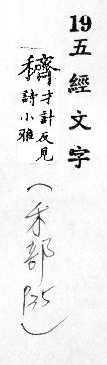 19五經文字
穧才計反見
詩小雅
(禾部135)